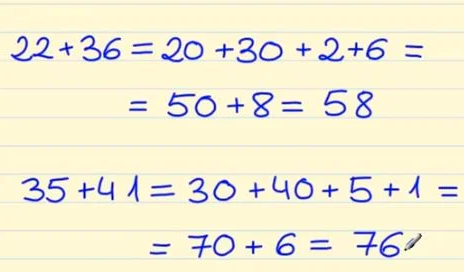 22+36=20+30+2+6=
=50+8=58
35+41=30+40+5+1=
=70+6=76